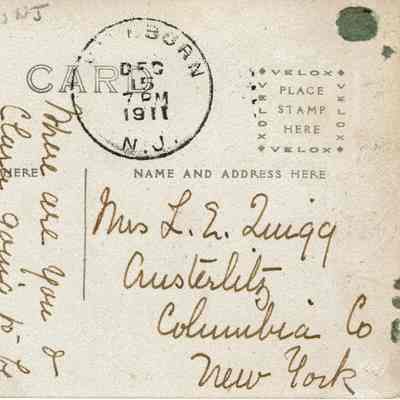 NJ
CARD
BORN
DEC
15
7 PM
1911
N.J.
VELOX
VELOX
PLACE
STAMP
HERE
VELOX
VELOX
HERE
NAME AND ADDRESS HERE
Mrs L. E. Quigg
Austerlitz
Columbia Co
New York
Where are you &
Clara going to be